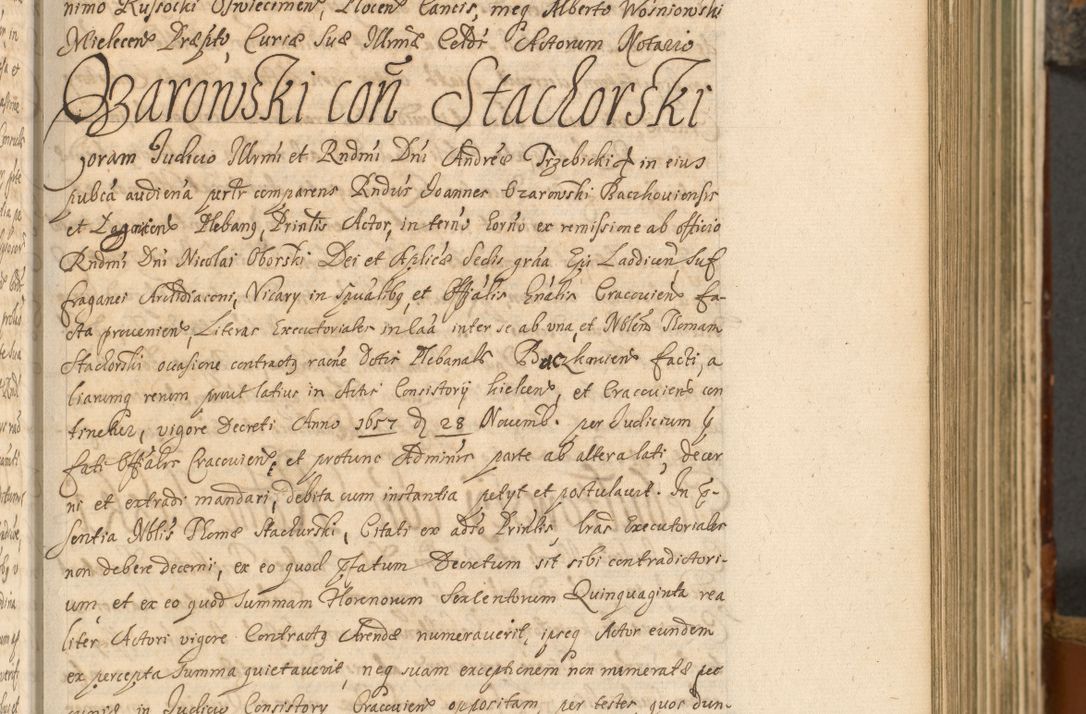 nimo Russocki Oswiecimen, Plocen Cancis, meq Alberto Wosniowski
Mielecen Præpto, Curiæ Suæ Illrmæ Celdis Actorum Notario
Ozarowski con Stachorski
Coram Iudicio Illrmi et Rndmi Dni Andreæ Trzebicki in eius
pubca audiena pertr comparens Rndus Joannes Ozarowski Baczkoviensis
et Plebang, Prinlis Actor, in terno forno ex remissione ab officio
Rndmi Dni Nicolai Oborski Dei et Aplicæ Sedis grha Epi Laodicen, Suf
fraganei Archidiaconi, Vicary in Spualibq, et Offalis Gnalis Cracovien fa-
cta provenien, Literas Executoriales in laa inter se ab una, et Nblem Thomam
Stachorski ocasione contractq racne Dotis Plebanals Baczkovien facti, a
liarumq rerum prout latius in Actis Consistorÿ Kielcen, et Cracovien con
tinetur, vigore Decreti Anno 1657 d 28 Novemb. per Iudicium p
fati Offalis Cracovien, et protunc Adminis parte ab altera lati, decer
ni et extradi mandari, debita cum instantia petyt et postulavit. In p-
sentia Nblis Thomæ Stachurski, Citati ex adso Prinlis, lras Executoriales
non debere decerni, ex eo quod pfatum Decretum sit sibi contradictori-
um, et ex eo quod summam Florenorum Sexlentorum Quinquaginta rea
liter Actori vigore Contractq Arendæ numeraverit, ipseq Actor eundem
ex percepta summa quietaverit, neq suam exceptionem non numeratæ pec
cuniæ in Iudicio Consistory Cracovien oppositam, per testes, quos dun-